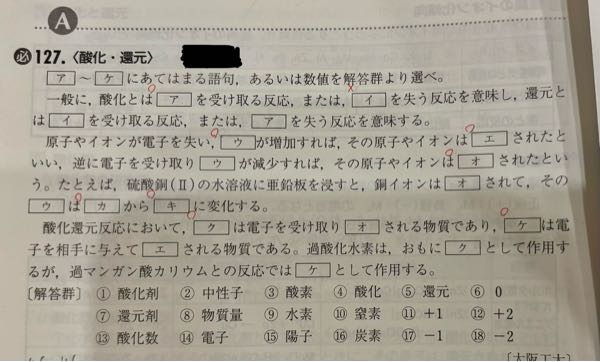 A
必 127.〈酸化・還元〉
ア ～ ケ にあてはまる語句，あるいは数値を解答群より選べ。
一般に，酸化とは ア を受け取る反応，または， イ を失う反応を意味し，還元と
は イ を受け取る反応，または， ア を失う反応を意味する。
原子やイオンが電子を失い， ウ が増加すれば，その原子やイオンは エ されたと
いい，逆に電子を受け取り ウ が減少すれば，その原子やイオンは オ されたとい
う。たとえば，硫酸銅(Ⅱ)の水溶液に亜鉛板を浸すと，銅イオンは オ されて，その
ウ は カ から キ に変化する。
酸化還元反応において， ク は電子を受け取り オ される物質であり， ケ は電
子を相手に与えて エ される物質である。過酸化水素は，おもに ク として作用す
るが，過マンガン酸カリウムとの反応では ケ として作用する。
〔解答群〕 ① 酸化剤 ② 中性子 ③ 酸素 ④ 酸化 ⑤ 還元 ⑥ 0
⑦ 還元剤 ⑧ 物質量 ⑨ 水素 ⑩ 窒素 ⑪ +1 ⑫ +2
⑬ 酸化数 ⑭ 電子 ⑮ 陽子 ⑯ 炭素 ⑰ −1 ⑱ −2
〔大阪工大〕